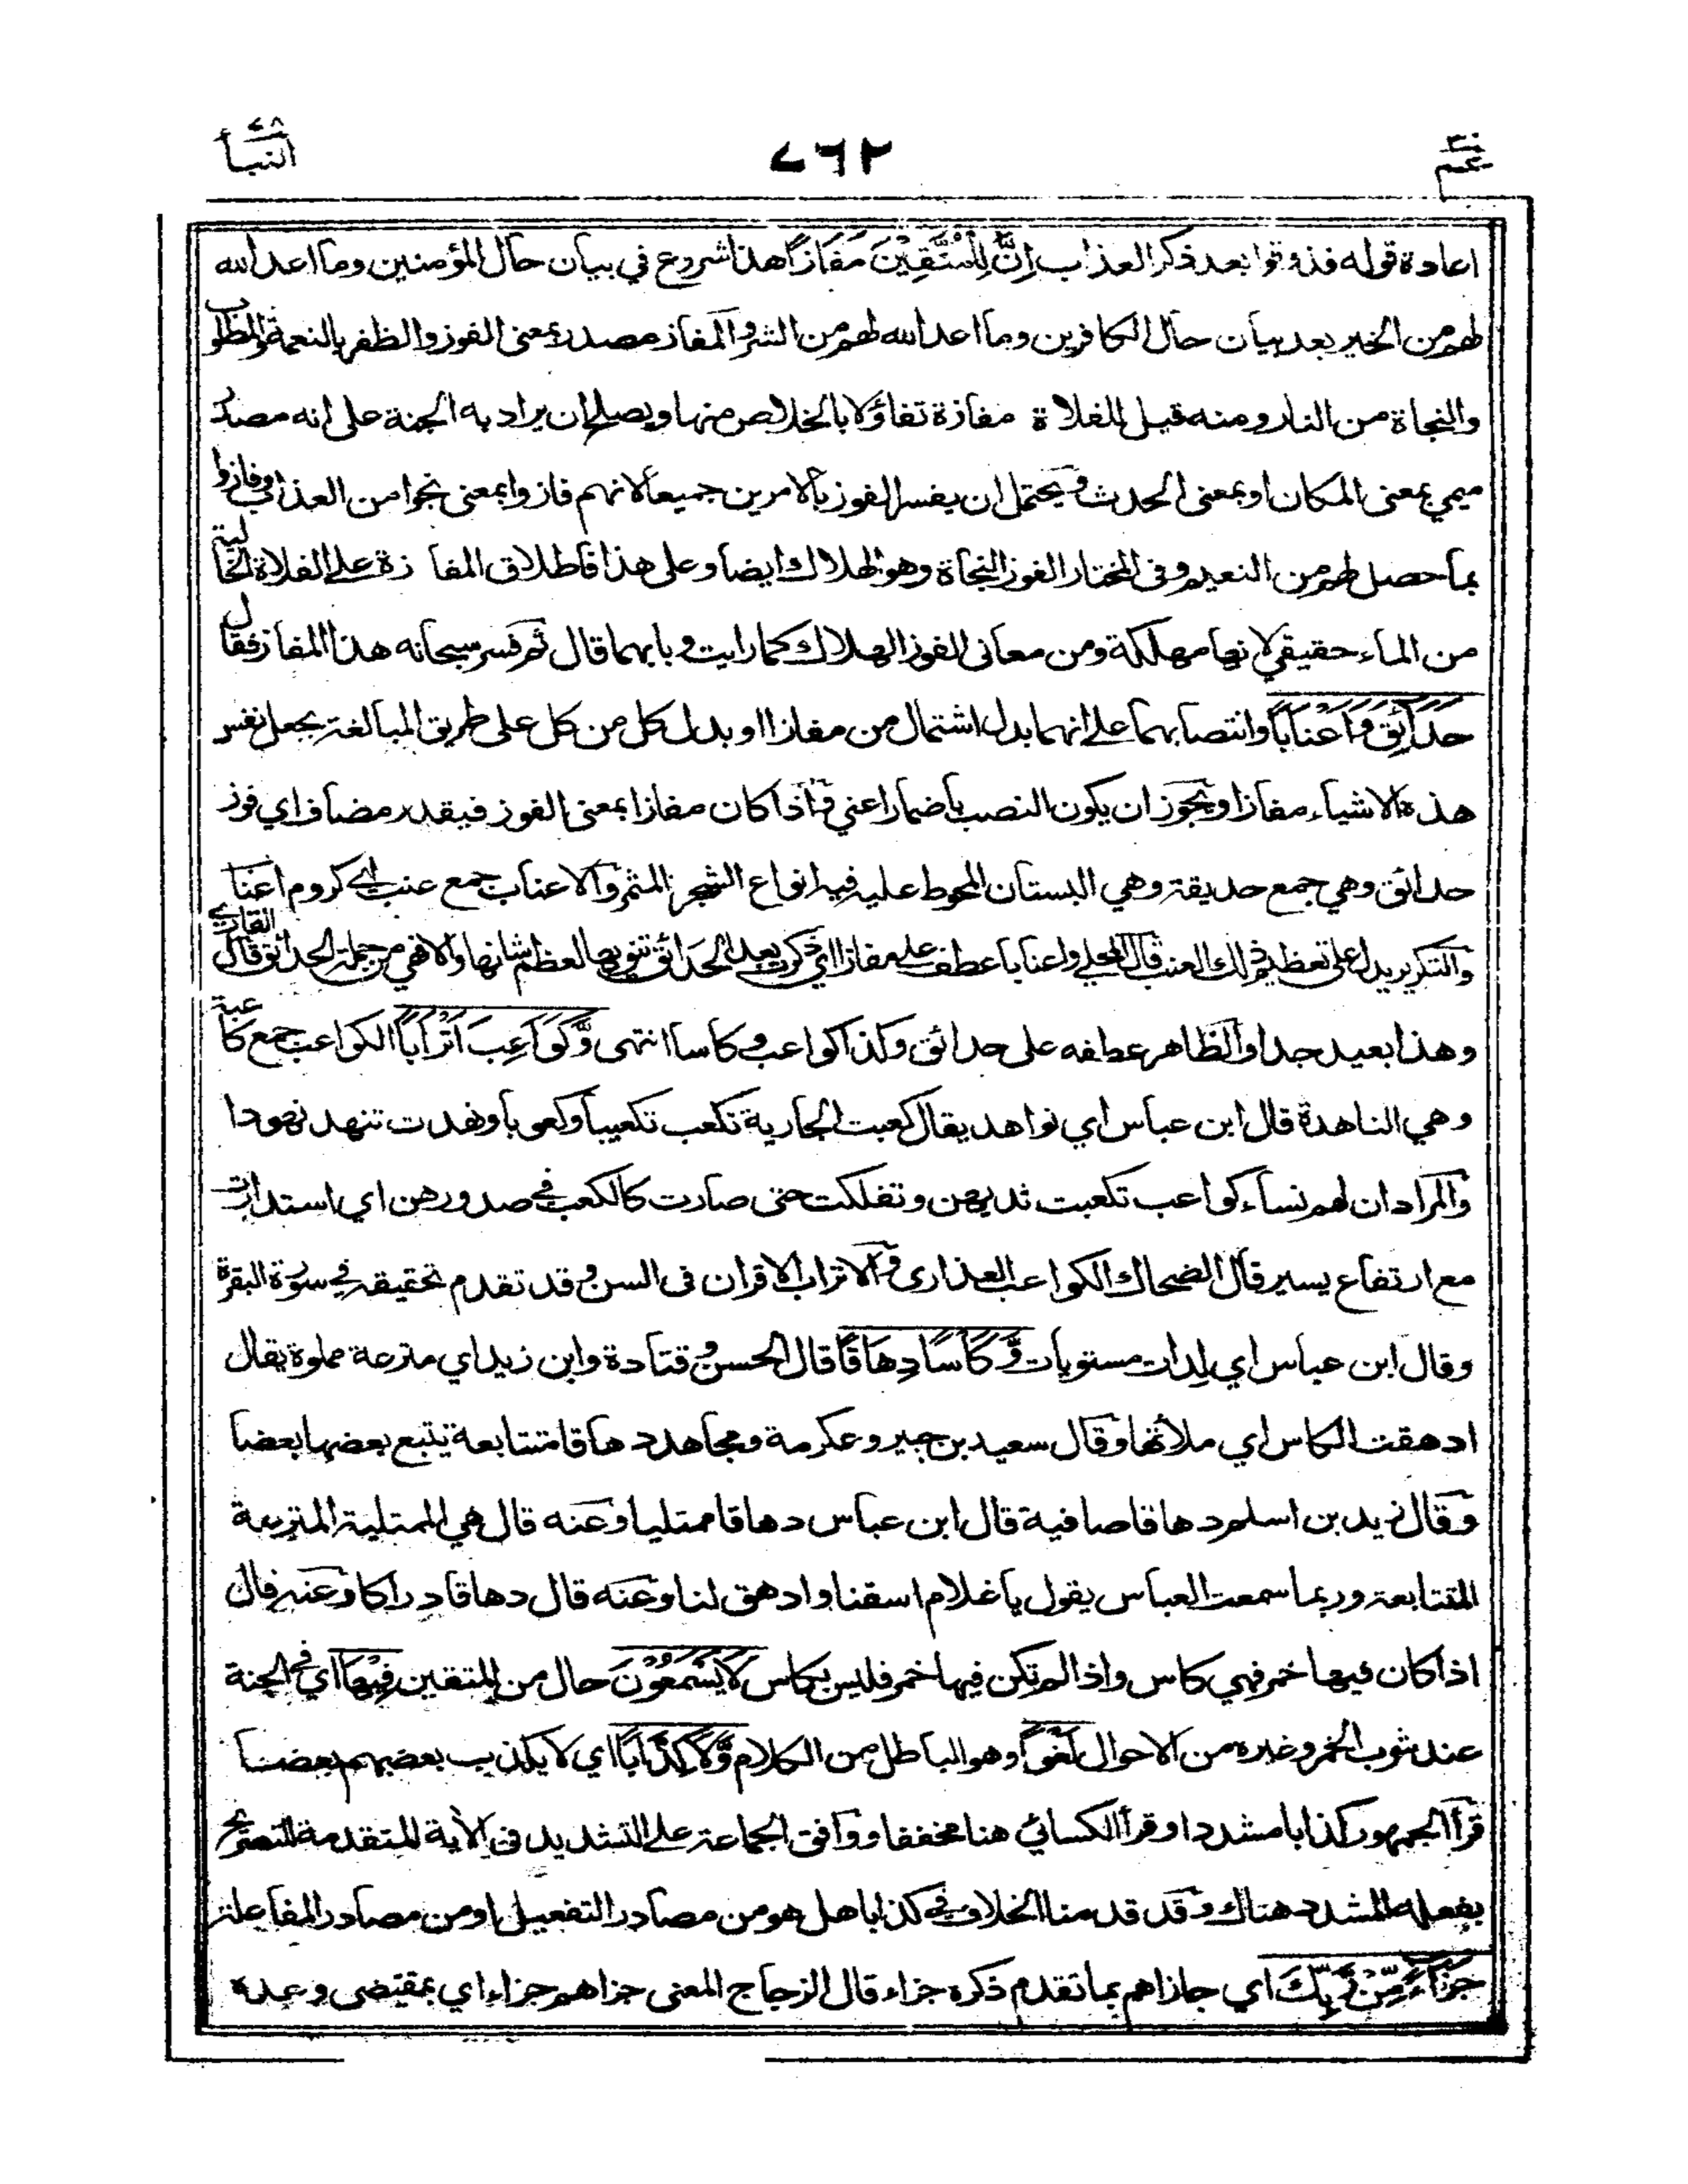 عم ٣٠
٢٦٢
النبأ ٧٨
اعادة قوله فذوقوا بعد ذكر العذاب اِنَّ لِلْمُتَّقِيْنَ مَفَازًا هذا شروع في بيان حال المؤمنين وما اعد الله
لهم من الخير بعد بيان حال الكافرين وما اعد الله لهم من الشر والمفاز مصدر بمعنى الفوز والظفر بالنعمة والمطلوب
والنجاة من النار ومنه قيل للفلاة مفازة تفاؤلا بالخلاص منها ويصلح ان يراد به الجنة على انه مصدر
ميمي بمعنى المكان او بمعنى الحدث ويحتمل ان يفسر الفوز بالامرين جميعا لانهم فازوا بمعنى نجوا من العذاب وفازوا
بما حصل لهم من النعيم وفي المختار الفوز النجاة وهو الهلاك ايضا وعلى هذا فاطلاق المفازة على الفلاة الخالية
من الماء حقيقي لانها مهلكة ومن معاني الفوز الهلاك كما رايت وبابهما قال ثم فسر سبحانه هذا المفاز فقال
حَدَائِقَ وَاَعْنَابًا وانتصابهما على انهما بدل اشتمال من مفازا او بدل كل من كل على طريق المبالغة بجعل نفس
هذه الاشياء مفازا ويجوز ان يكون النصب باضمار اعني واذا كان مفازا بمعنى الفوز فيقدر مضاف اي فوز
حدائق وهي جمع حديقة وهي البستان المحوط عليه فيه انواع الشجر المثمر والاعناب جمع عنب اي كروم اعناب
والتنكير يدل على تعظيم ذلك العنب قال المحلي واعنابا عطف على مفازا اي ذكرت بعد الحدائق تنويها لعظم شانها والا فهي من جملة الحدائق قال القاري
وهذا بعيد جدا والظاهر عطفه على حدائق وكذا كواعب وكاسا انتهى وَّكَوَاعِبَ اَتْرَابًا الكواعب جمع كاعبة
وهي الناهدة قال ابن عباس اي نواهد يقال كعبت الجارية تكعب تكعيبا وكعوبا ونهدت تنهد نهودا
والمراد ان لهم نساء كواعب تكعبت ثديهن وتفلكت حتى صارت كالكعب في صدورهن اي استدارت
مع ارتفاع يسير قال الضحاك الكواعب العذارى والاتراب الاقران في السن وقد تقدم تحقيقه في سورة البقرة
وقال ابن عباس اي لِدات مستويات وَّكَاْسًا دِهَاقًا قال الحسن وقتادة وابن زيد اي مترعة مملوة يقال
ادهقت الكاس اي ملأتها وقال سعيد بن جبير وعكرمة ومجاهد دهاقا متتابعة يتبع بعضها بعضا
وقال زيد بن اسلم دهاقا صافية قال ابن عباس دهاقا ممتليا وعنه قال هي الممتلية المترعة
المتتابعة وربما سمعت العباس يقول يا غلام اسقنا وادهق لنا وعنه قال دهاقا دراكا وعنه قال
اذا كان فيها خمر فهي كاس واذا لم تكن فيها خمر فليس بكاس لَا يَسْمَعُوْنَ حال من المتقين فِيْهَا اي في الجنة
عند شرب الخمر وغيره من الاحوال لَغْوًا وهو الباطل من الكلام وَّلَا كِذَّابًا اي لا يكذب بعضهم بعضا
قرأ الجمهور كذابا مشددا وقرأ الكسائي هنا مخففا ووافق الجماعة على التشديد في الاية المتقدمة للتصريح
بفعله المشدد هناك وقد قدمنا الخلاف في كذابا هل هو من مصادر التفعيل او من مصادر المفاعلة
جَزَاءً مِّنْ رَّبِّكَ اي جازاهم بما تقدم ذكره جزاء قال الزجاج المعنى جزاهم جزاء اي بمقتضى وعده